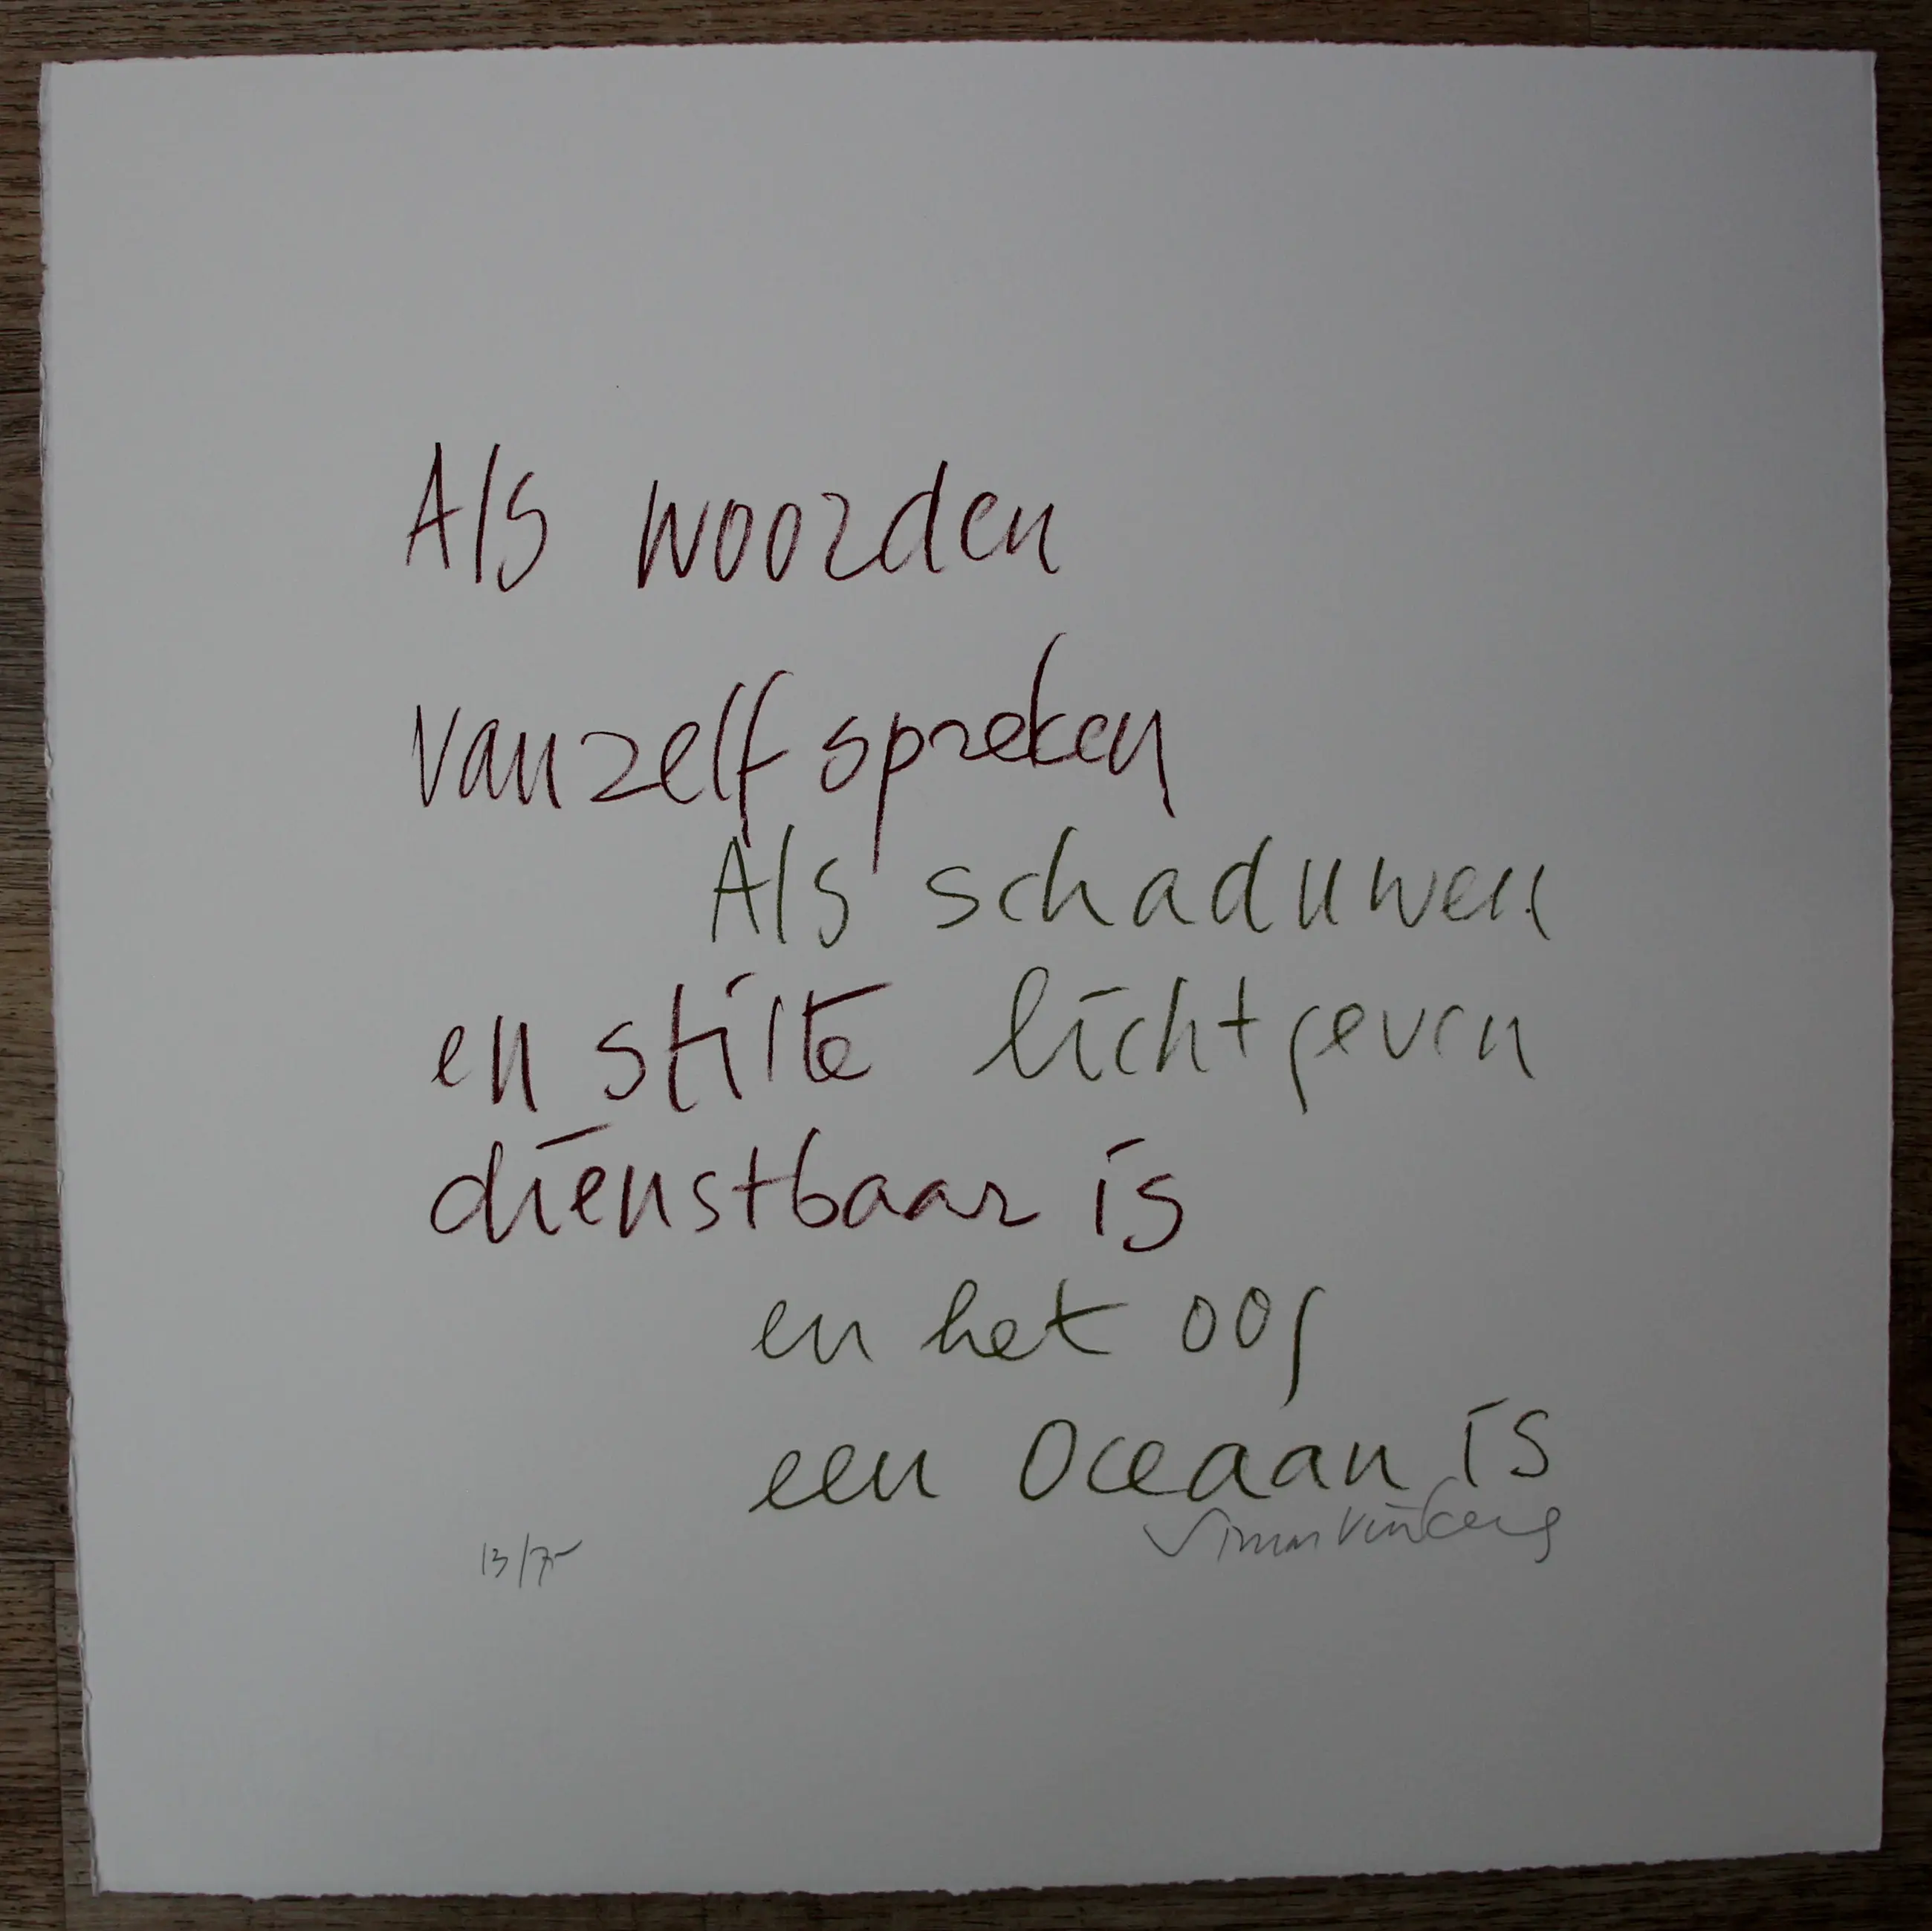 Als woorden
vanzelf spreken
Als schaduwen
en stilte lichtgeven
dienstbaar is
en het oog
een oceaan is
Simon Vinkenoog
13/75